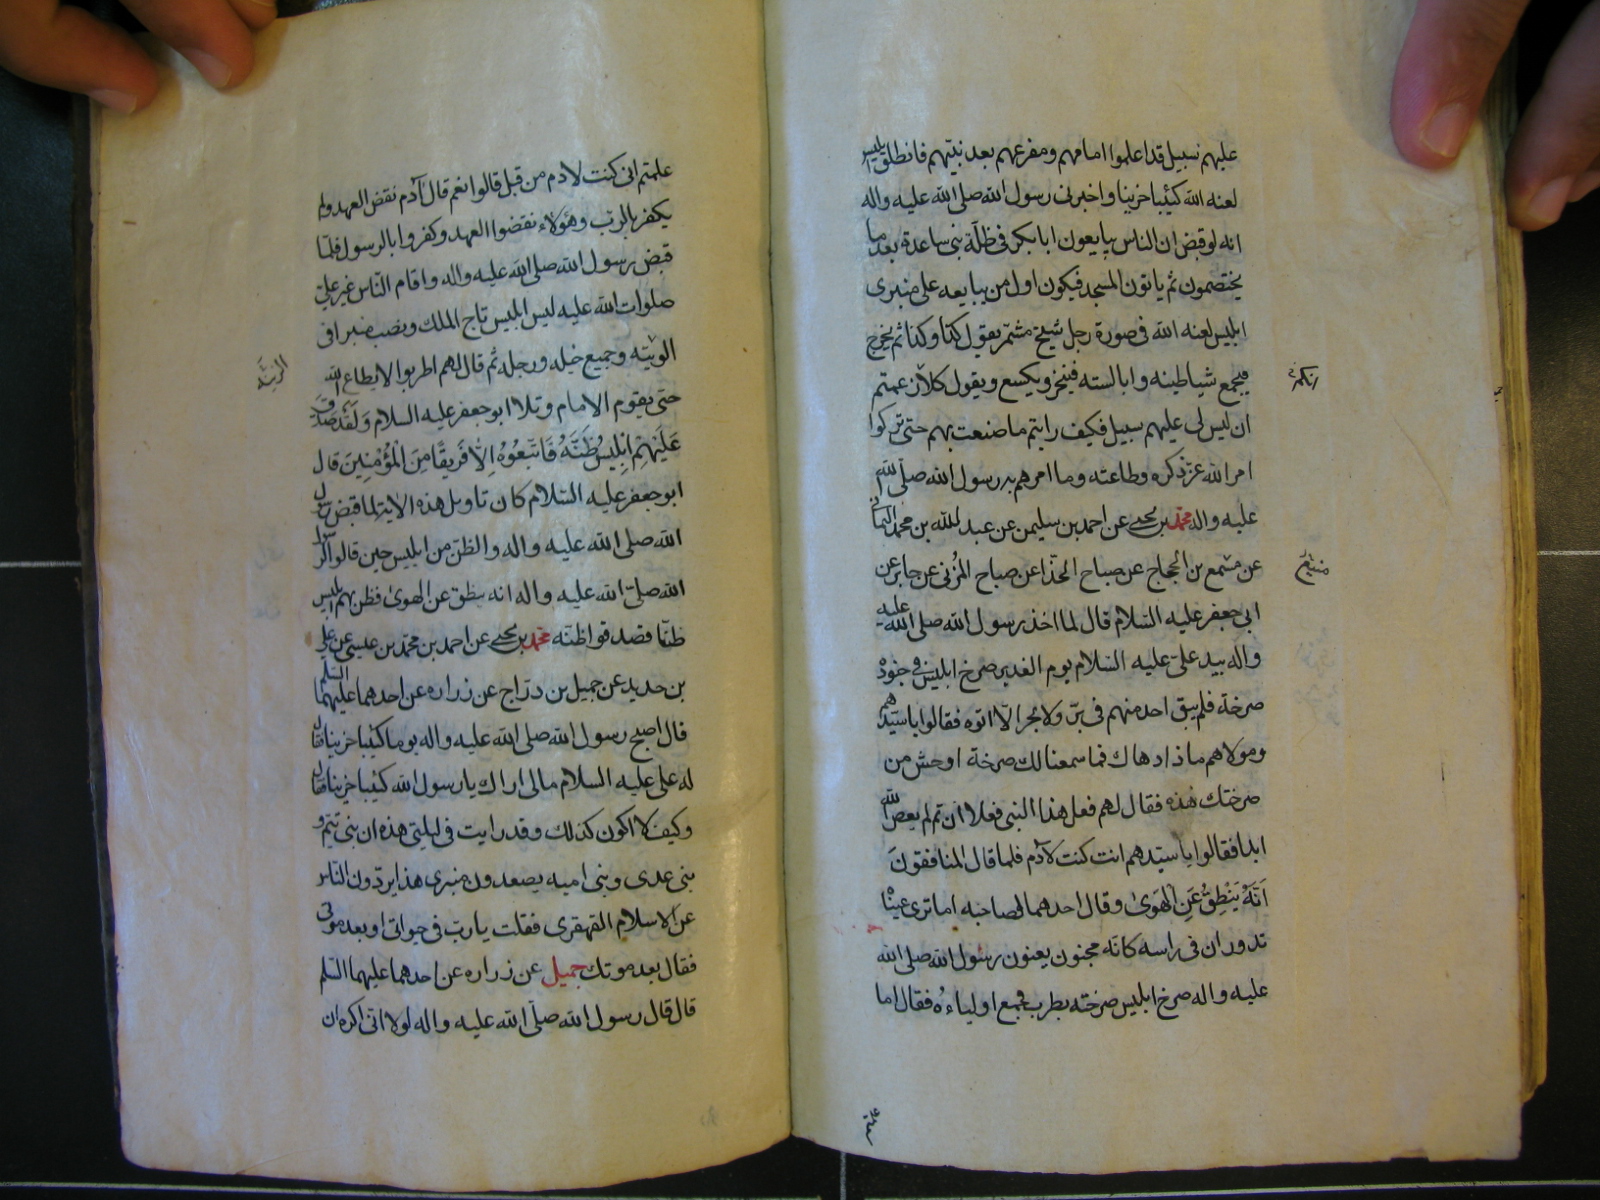 عليهم سبيل قد اعلموا امامهم ومفزعهم بعد نبيهم فانطلق ابليس
لعنه الله كئيبا حزينا واخبرنى رسول الله صلى الله عليه واله
انه لو قبض ان الناس يبايعون ابا بكر فى ظلة بنى ساعدة بعد ما
يختصمون ثم ياتون المسجد فيكون اول من يبايعه على منبرى
ابليس لعنه الله فى صورة رجل شيخ مشمر يقول كذا وكذا ثم يخرج
فيجمع شياطينه وابالسته فينخر ويكسع ويقول كلا زعمتم
ان ليس لى عليهم سبيل فكيف رايتم ما صنعت بهم حتى تركوا
امر الله عز ذكره وطاعته وما امرهم به رسول الله صلى الله
عليه واله محمد بن يحيى عن احمد بن سليمن عن عبد الله بن محمد اليمانى
عن مسمع بن الحجاج عن صباح الحذا عن صباح المزنى عن جابر عن
ابى جعفر عليه السلام قال لما اخذ رسول الله صلى الله عليه
واله بيد على عليه السلام يوم الغدير صرخ ابليس فى جنوده
صرخة فلم يبق احد منهم فى بر ولا بحر الا اتوه فقالوا يا سيدهم
ومولاهم ماذا دهاك فما سمعنا لك صرخة اوحش من
صرختك هذه فقال لهم فعل هذا النبى فعلا ان تم لم يعص الله
ابدا فقالوا يا سيدهم انت كنت لآدم فلما قال المنافقون
اَنَّهُ يَنْطِقُ عَنِ الْهَوَىٰ وقال احدهما لصاحبه اما ترى عينيه
تدوران فى راسه كانه مجنون يعنون رسول الله صلى الله
عليه واله صرخ ابليس صرخته بطرب فجمع اولياءه فقال اما
علمتم انى كنت لادم من قبل قالوا نعم قال آدم نقض العهد ولم
يكفر بالرب وهؤلاء نقضوا العهد وكفروا بالرسول فلما
قبض رسول الله صلى الله عليه واله واقام الناس غير على
صلوات الله عليه لبس ابليس تاج الملك ونصب منبرا فى
الويته وجميع خيله ورجله ثم قال لهم اطربوا لا يطاع الله
الزينة
حتى يقوم الامام وتلا ابو جعفر عليه السلام وَلَقَدْ صَدَّقَ
عَلَيْهِمْ اِبْلِيسُ ظَنَّهُ فَاتَّبَعُوهُ اِلَّا فَرِيقًا مِنَ الْمُؤْمِنِينَ قال
ابو جعفر عليه السلام كان تاويل هذه الاية لما قبض رسول
الله صلى الله عليه واله والظن من ابليس حين قالوا لرسول
الله صلى الله عليه واله انه ينطق عن الهوى فظن بهم ابليس
ظنا فصدقوا ظنه محمد بن يحيى عن احمد بن محمد بن عيسى عن على
بن حديد عن جميل بن دراج عن زراره عن احدهما عليهما السلم
قال اصبح رسول الله صلى الله عليه واله يوما كئيبا حزينا فقال
له على عليه السلام مالى اراك يا رسول الله كئيبا حزينا فقال
وكيف لا اكون كذلك وقد رايت فى ليلتى هذه ان بنى تيم و
بنى عدى وبنى اميه يصعدون منبرى هذا يردون الناس
عن الاسلام القهقرى فقلت يا رب فى حيوتى او بعد موتى
فقال بعد موتك جميل عن زراره عن احدهما عليهما السلم
قال قال رسول الله صلى الله عليه واله لولا انى اكره ان